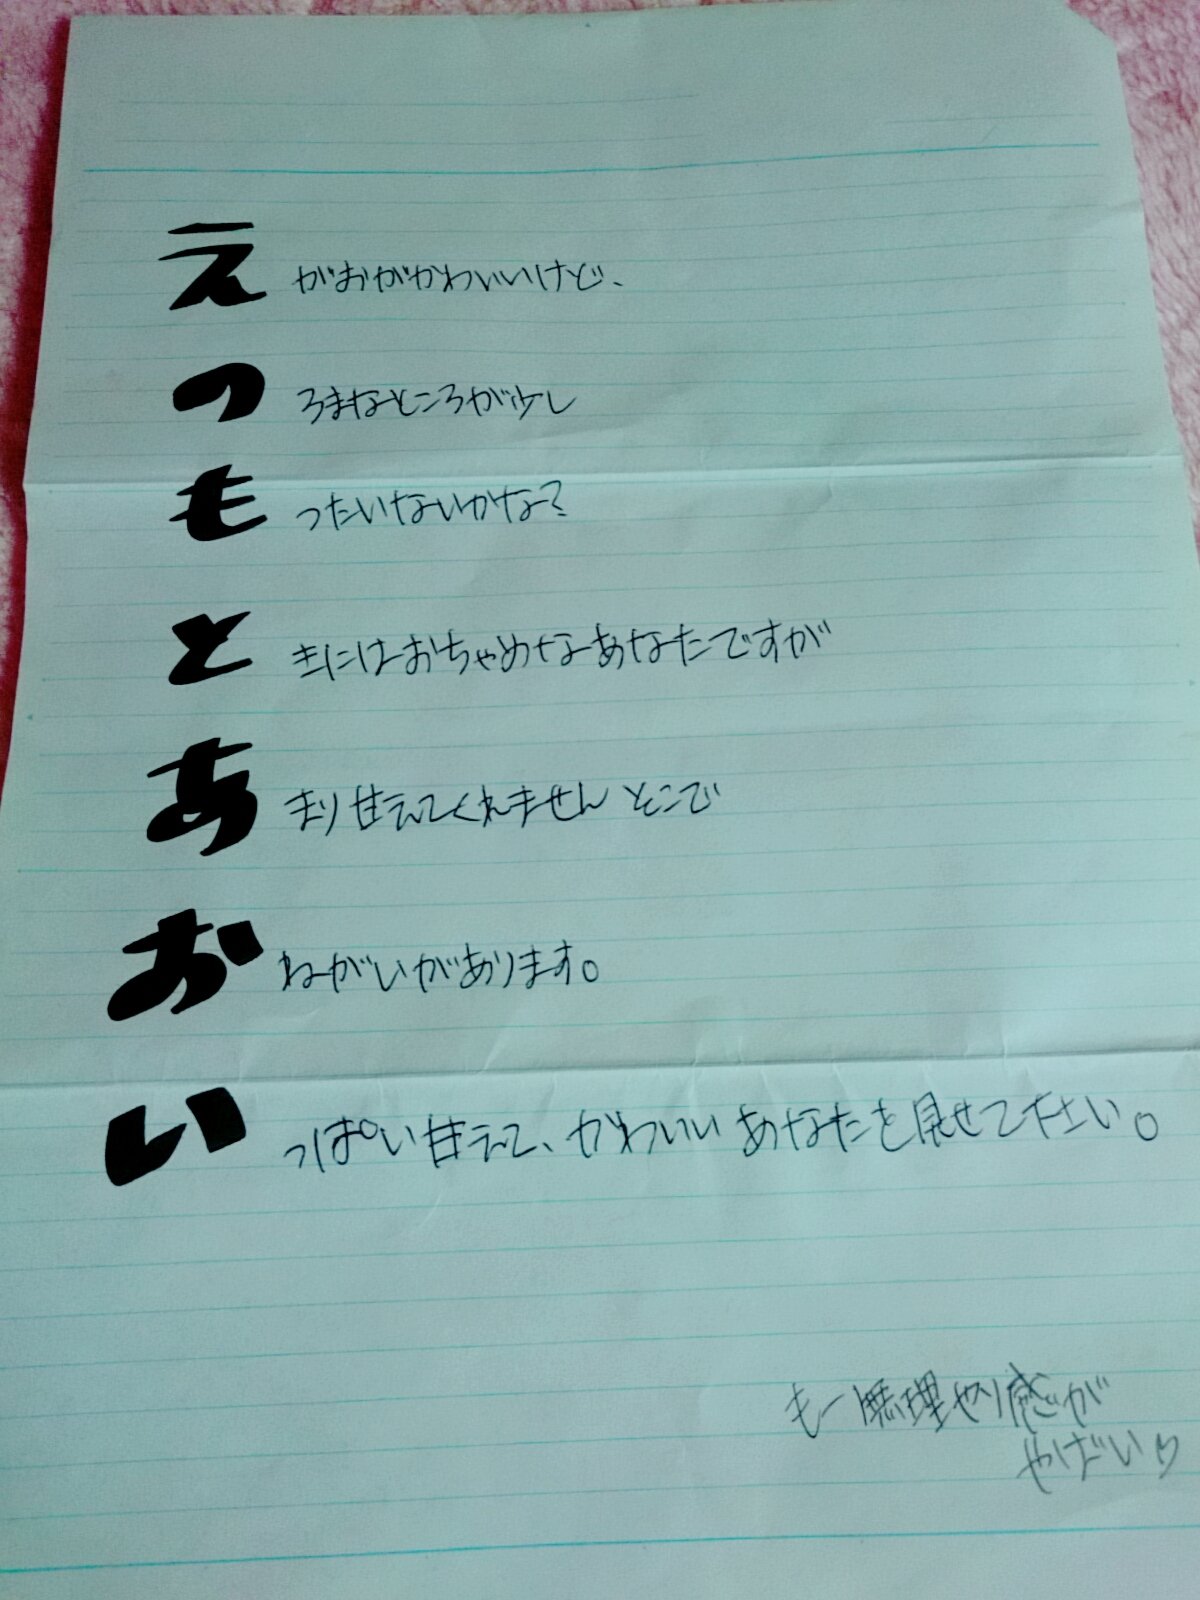 えがおがかわいいけど、
のろまなところが少し
もったいないかな?
ときにはおちゃめなあなたですが
あまり甘えてくれません そこで
おねがいがあります。
いっぱい甘えて、かわいいあなたを見せて下さい。
もー無理やり感が
やばい♡